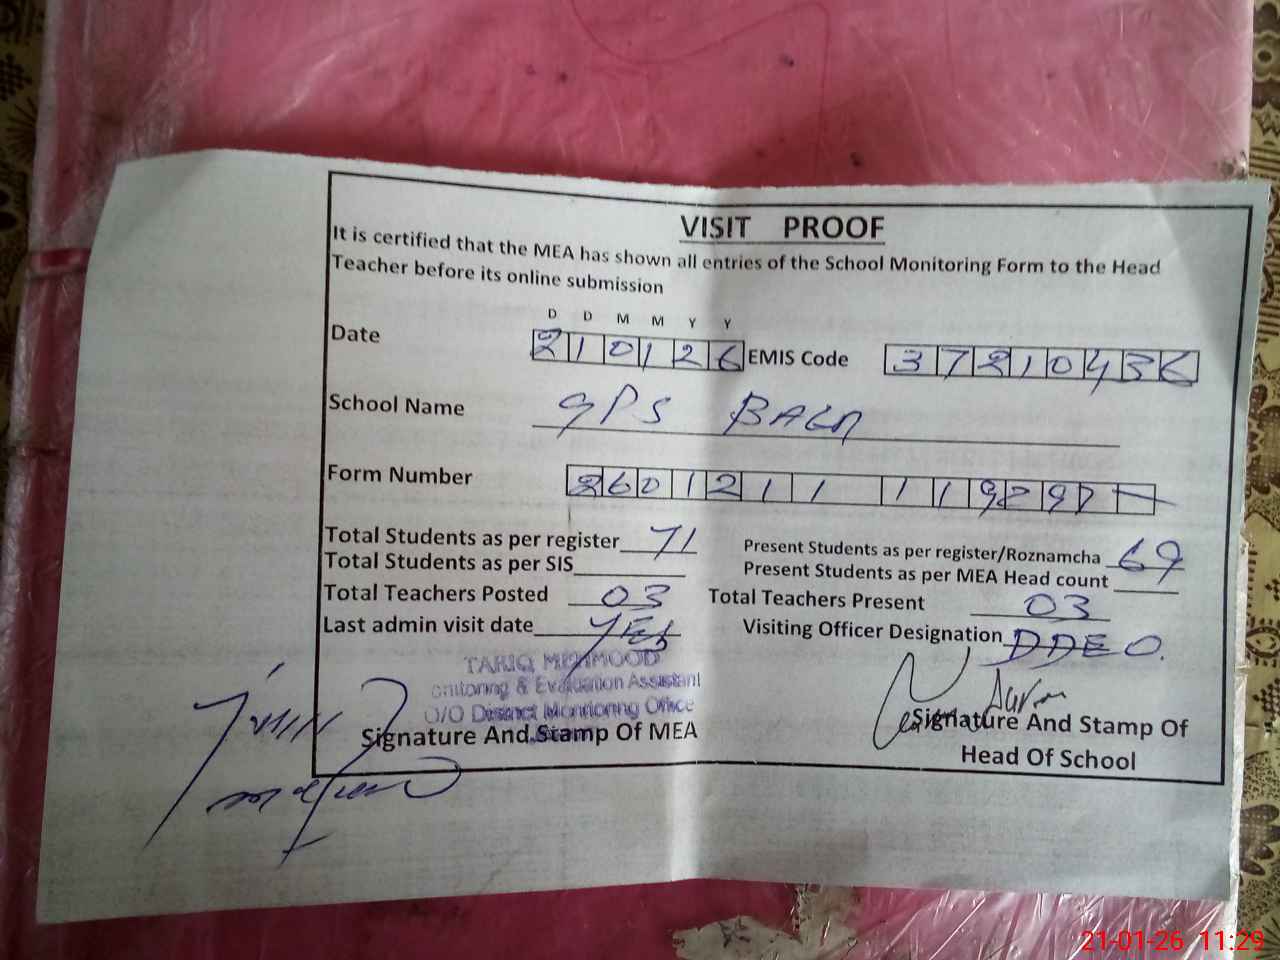 VISIT PROOF
It is certified that the MEA has shown all entries of the School Monitoring Form to the Head
Teacher before its online submission
D D M M Y Y
Date 210126 EMIS Code 37210436
School Name GPS BAGA
Form Number 26012111119297
Total Students as per register 71 Present Students as per register/Roznamcha 69
Total Students as per SIS Present Students as per MEA Head count
Total Teachers Posted 03 Total Teachers Present 03
Last admin visit date YES Visiting Officer Designation DDEO.
TARIQ MEHMOOD
onitoring & Evaluation Assistant
O/O District Monitoring Office
Signature And Stamp Of MEA Signature And Stamp Of
Head Of School
21-01-26 11:29